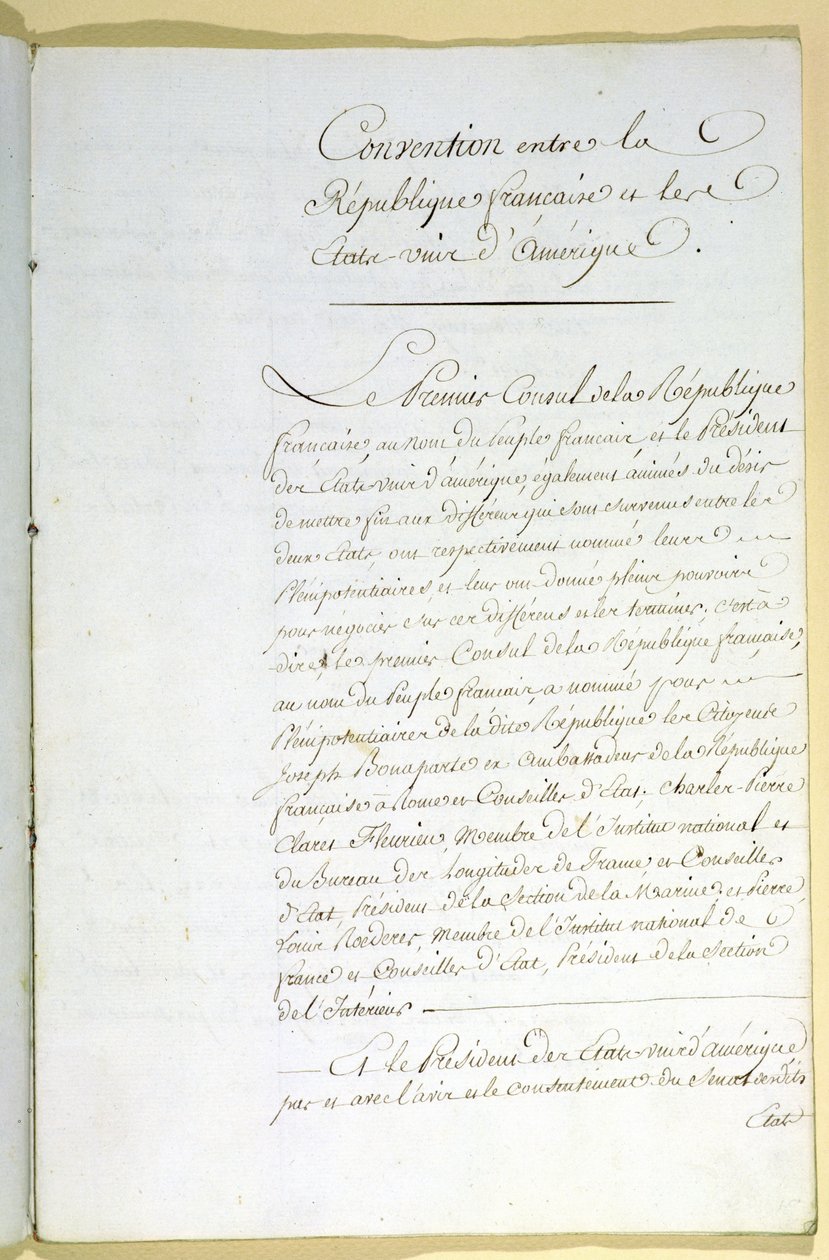 Convention entre la
République française et les
Etats-unis d'Amérique.
Le Premier Consul de la République
française, au nom du Peuple français et le Président
des Etats-unis d'amérique, également animés du désir
de mettre fin aux différens qui sont survenus entre les
deux Etats, ont respectivement nommé leurs
Plénipotentiaires, et leur ont donné pleins pouvoirs
pour négocier sur ces différens et les terminer; c'est à
dire, le premier Consul de la République française,
au nom du Peuple français, a nommé pour
Plénipotentiaires de la dite République les Citoyens
Joseph Bonaparte ex ambassadeur de la République
française à Rome et Conseiller d'Etat; Charles-Pierre
Claret Fleurieu, Membre de l'Institut national et
du Bureau des Longitudes de France, et Conseiller
d'Etat, Président de la Section de la Marine; et Pierre
Louis Roederer, Membre de l'Institut national de
france et Conseiller d'Etat, Président de la Section
de l'Intérieur
Et le Président des Etats-unis d'amérique,
par et avec l'avis et le consentement du Senat desdits
Etats